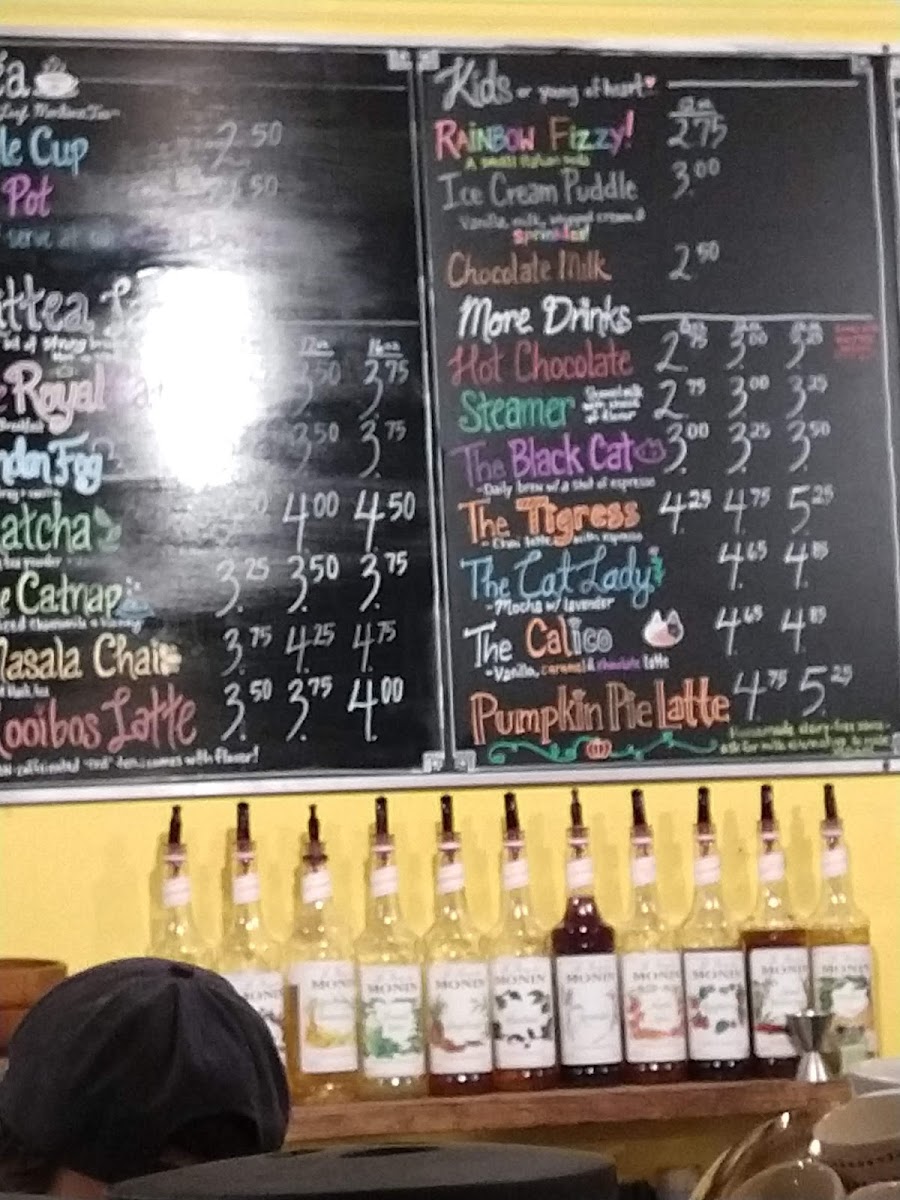 ea
le Cup 2.50
Pot .50
serve
ttea
of strong
12oz 16oz
Royal 3.50 3.75
ndon Fog 3.50 3.75
atcha 4.00 4.50
e Catnap 3.25 3.50 3.75
Masala Chai 3.75 4.25 4.75
ooibos Latte 3.50 3.75 4.00
comes with flavor!
Kids or young of heart
12oz
RAINBOW FIZZY! 2.75
A small Italian soda
Ice Cream Puddle 3.00
Vanilla, milk, whipped cream &
sprinkles!
Chocolate Milk 2.50
More Drinks
Hot Chocolate 2.75 3.00 3.25
Steamer 2.75 3.00 3.25
Steamed milk
of flavor
The Black Cat 3.00 3.25 3.50
-Daily brew w/ a shot of espresso
The Tigress 4.25 4.75 5.25
- Chai latte with espresso
The Cat Lady 4.65 4.85
-Mocha w/ lavender
The Calico 4.65 4.85
-Vanilla, caramel & chocolate latte
Pumpkin Pie latte 4.75 5.25
MONIN
MONIN
MONIN
MONIN
MONIN
MONIN
MONIN
MONIN
MONIN
MONIN